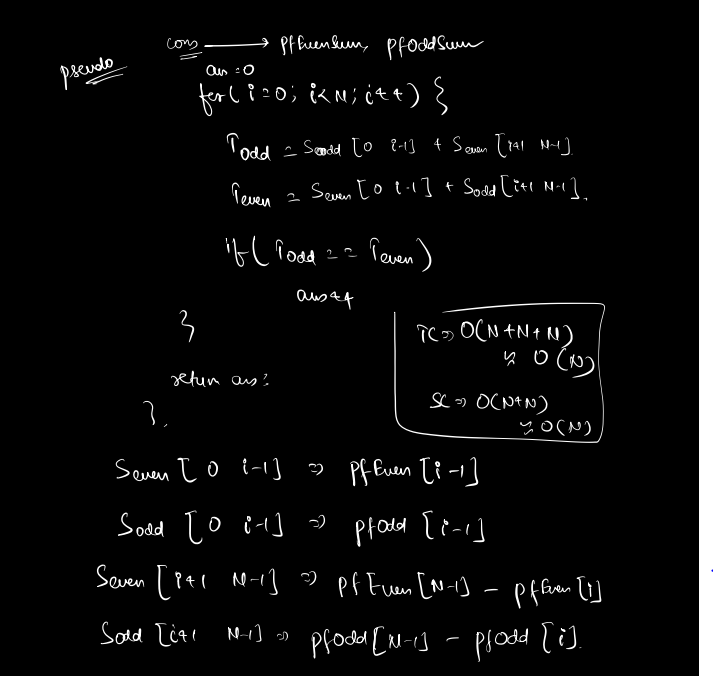 cons → PfEvenSum, pfOddSum
pseudo
ans = 0
for( i=0; i<N; i++ ) {
Todd = Sodd [0 i-1] + Seven [i+1 N-1].
Teven = Seven [0 i-1] + Sodd [i+1 N-1].
if( Todd == Teven )
ans++
}
return ans;
}.
TC => O(N+N+N)
≈ O(N)
SC => O(N+N)
≈ O(N)
Seven [ 0 i-1] => pfEven [i-1]
Sodd [0 i-1] => pfodd [i-1]
Seven [i+1 N-1] => pfEven [N-1] - pfEven [i]
Sodd [i+1 N-1] => pfodd [N-1] - pfodd [i].